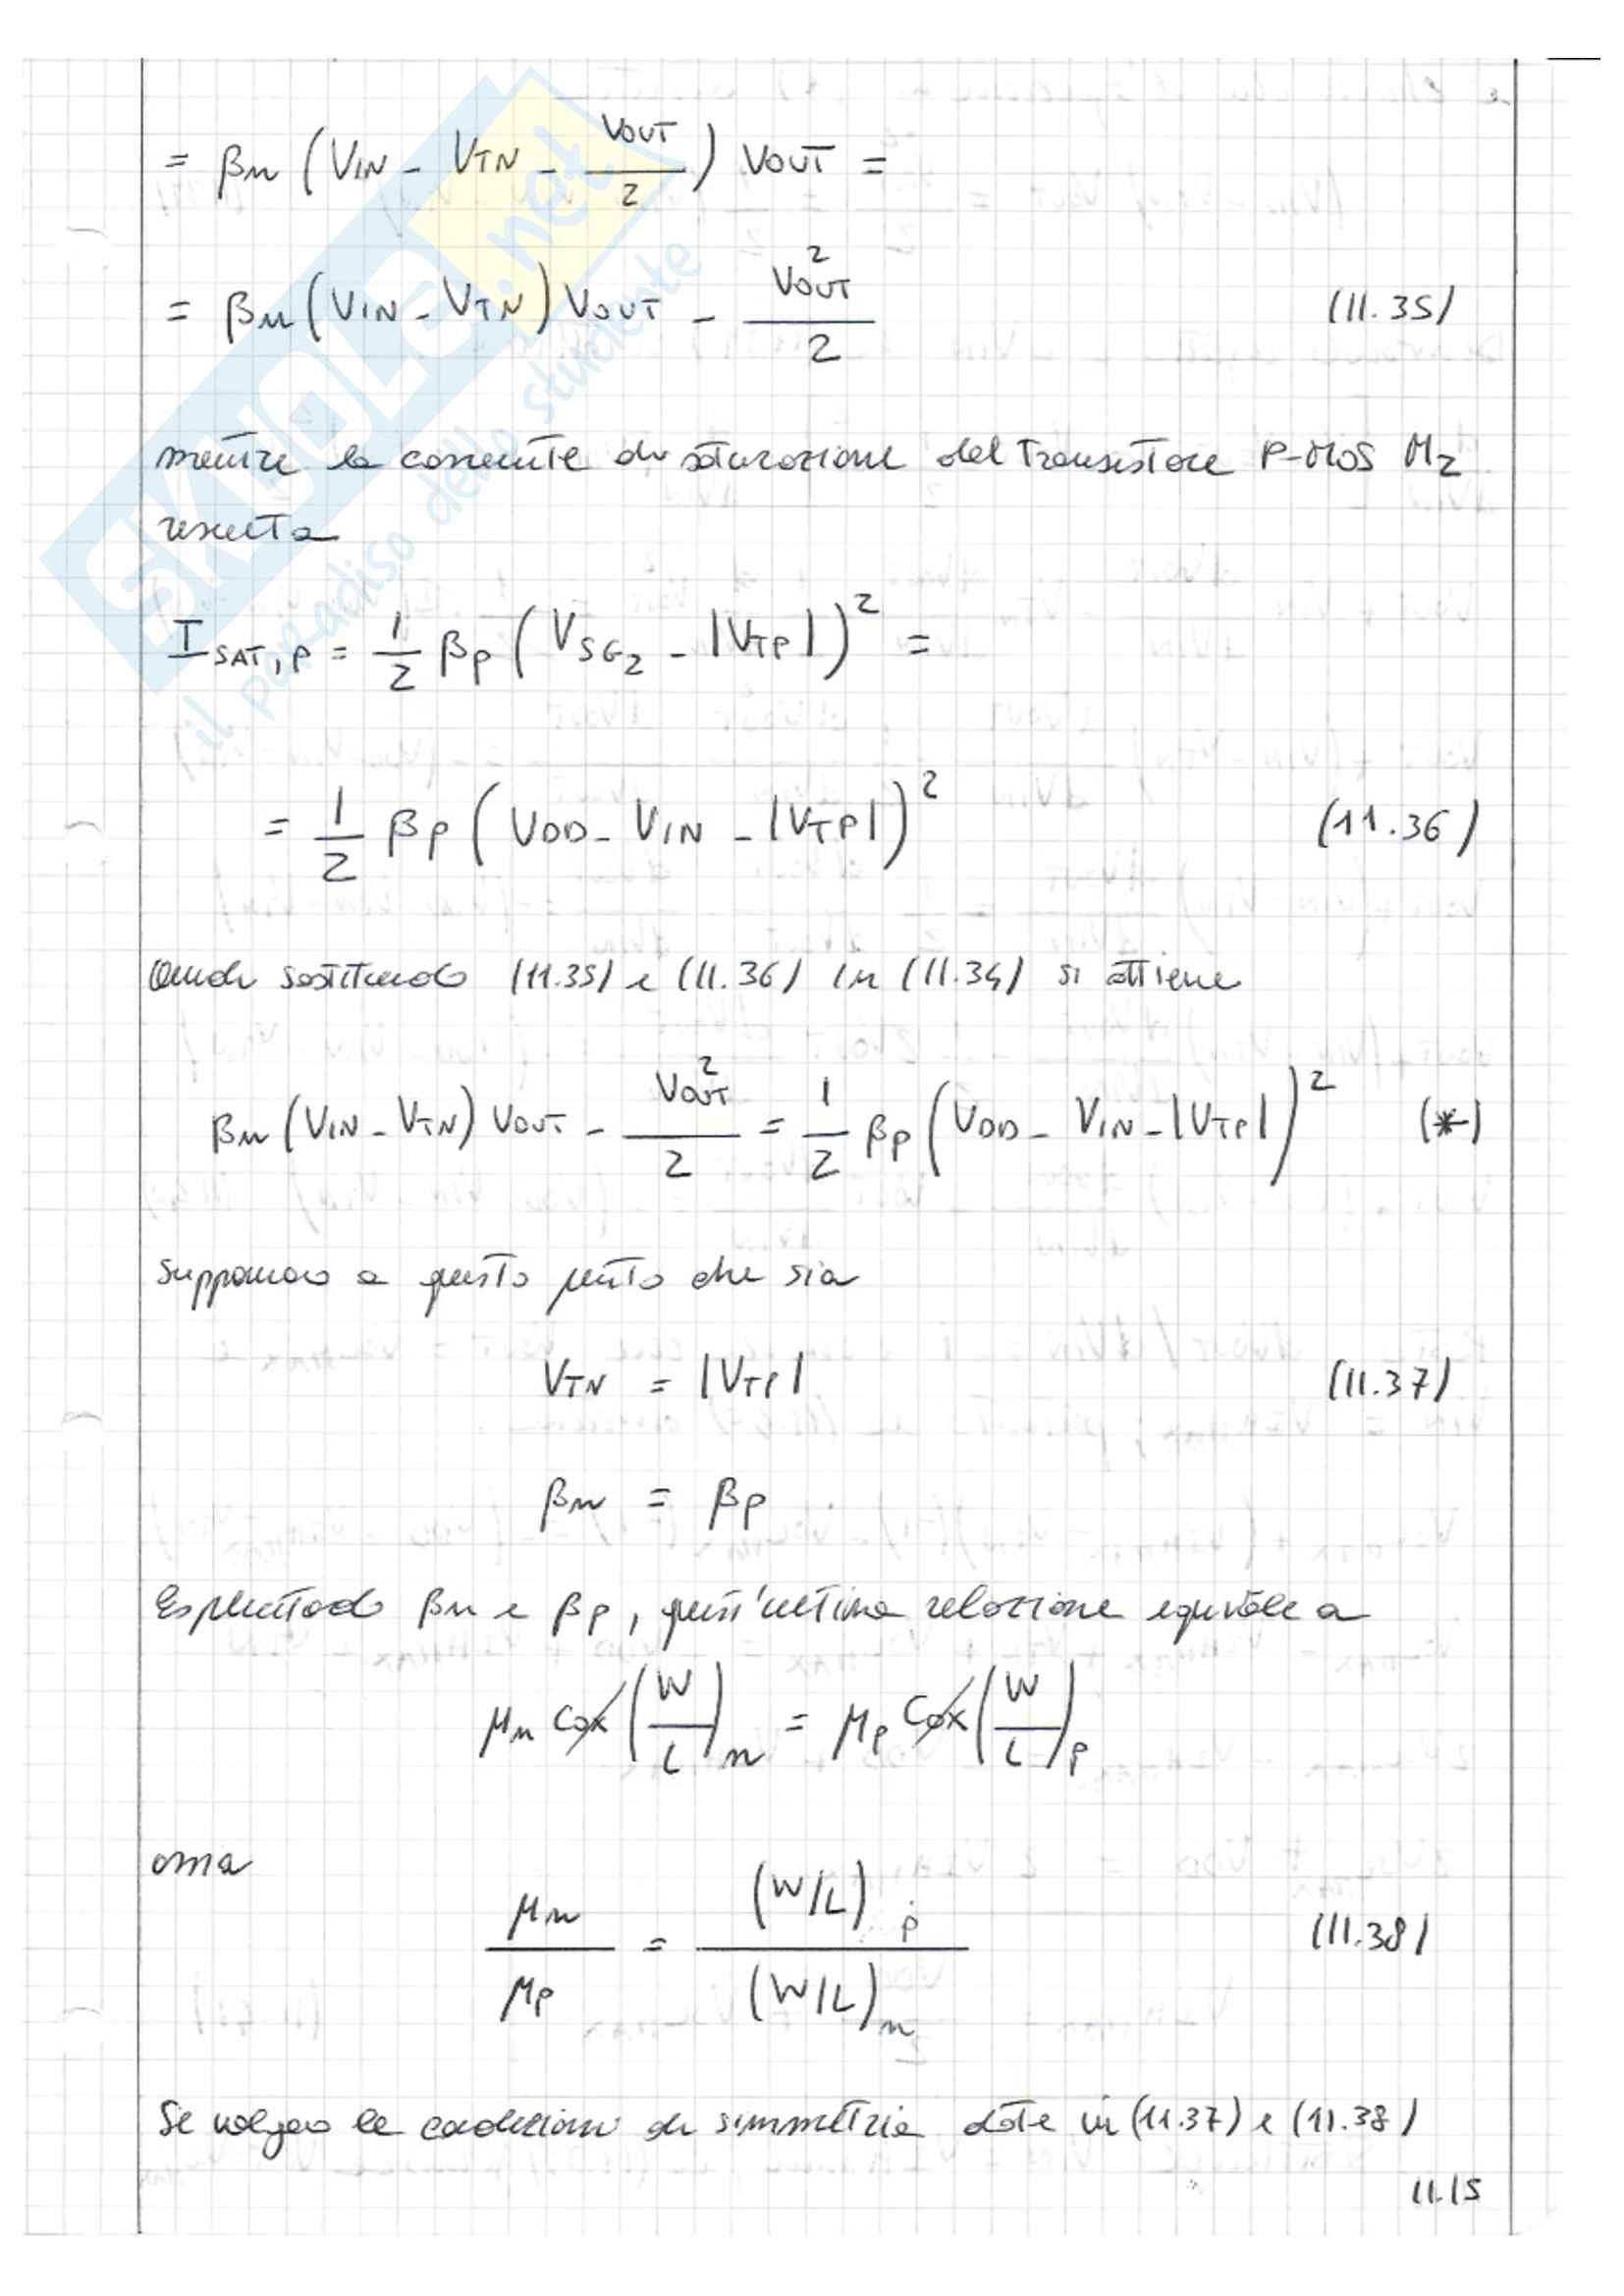 = βn (VIN - VTN - VOUT/2) VOUT =
= βn (VIN - VTN) VOUT - VOUT²/2 (11.35)
mentre la corrente di saturazione del transistore P-MOS M2
risulta
ISAT,P = 1/2 βP (VSG2 - |VTP|)² =
= 1/2 βP (VDD - VIN - |VTP|)² (11.36)
Quindi sostituendo (11.35) e (11.36) in (11.34) si ottiene
βn (VIN - VTN) VOUT - VOUT²/2 = 1/2 βP (VDD - VIN - |VTP|)² (*)
Supponiamo a questo punto che sia
VTN = |VTP| (11.37)
βn = βP
Esplicitando βn e βP, quest'ultima relazione equivale a
μn Cox (W/L)n = μP Cox (W/L)P
ossia
μn/μP = (W/L)P/(W/L)n (11.38)
Se valgono le condizioni di simmetria date in (11.37) e (11.38)
11.15
SKUOLA.net
il paradiso dello studente